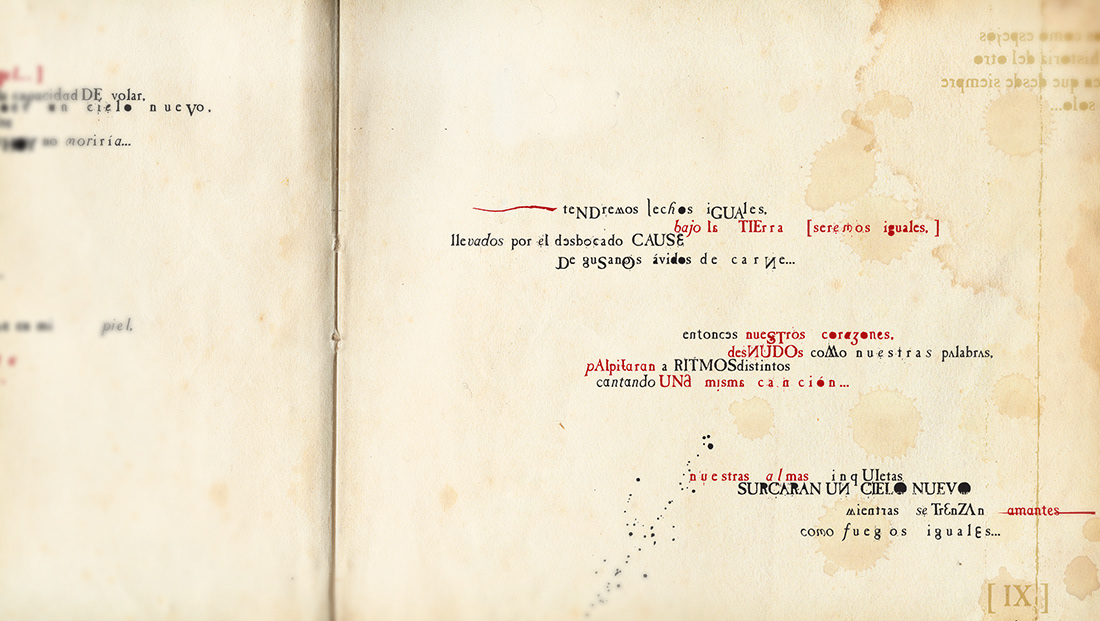 capacidad DE volar.
un cielo nuevo.
no moriría...
en mi piel.
como espejos
historia del otro
que desde siempre
solo...
teNDremos lechos iGUAles.
bajo la TIErra [seremos iguales.]
llevados por el desbocado CAUSE
De guSanOs ávidos de carNe...
entonces nueSTros corazones.
desNUDOs coMo nuestras palabras.
pAlpitaran a RITMOSdistintos
cantando UNa misma canción...
nuestras almas inqUIetas
SURCARAN UN CIELO NUEVO
mientras se TrEnZAn amantes
como fuegos iguales...
[ IX ]